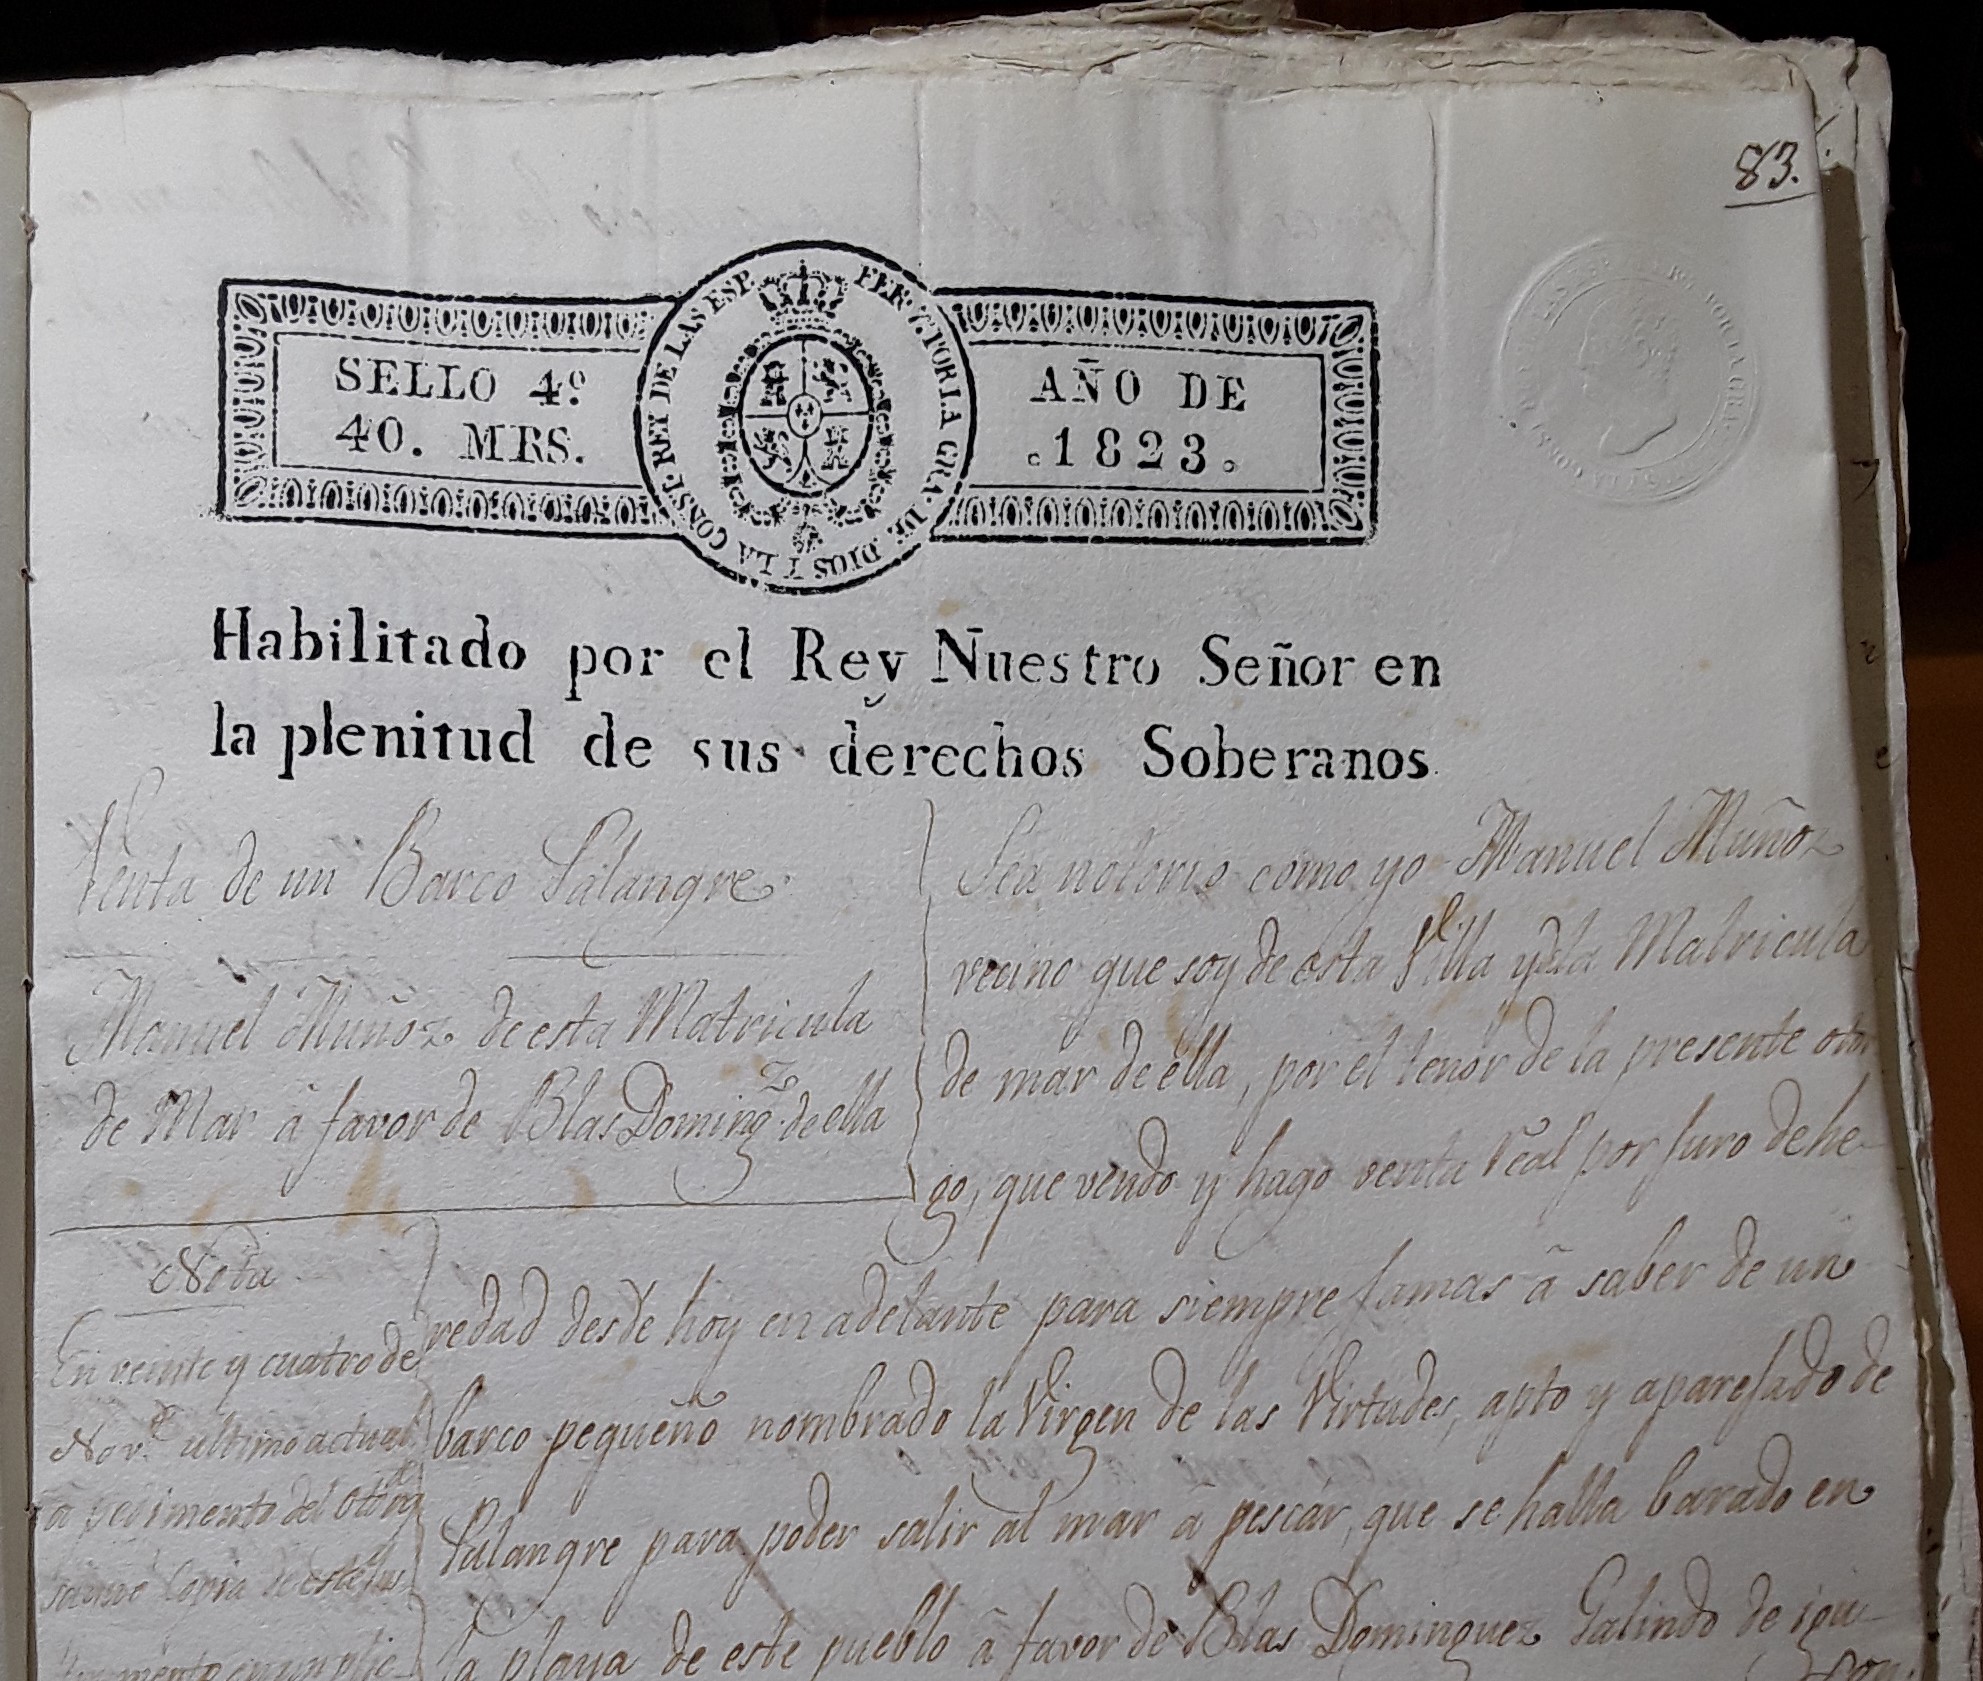 83.
SELLO 4º
40. MRS.
FER. 7. POR LA GRA. DE DIOS Y LA CONST. REY DE LAS ESP.
AÑO DE
1823.
Habilitado por el Rey Nuestro Señor en
la plenitud de sus derechos Soberanos
Venta de un Barco Palangre
Manuel Muñoz de esta Matricula
de Mar á favor de Blas Doming.z de ella
Sea notorio como yo Manuel Muñoz
vecino que soy de esta Villa y de la Matricula
de mar de ella, por el tenor de la presente otor
go, que vendo y hago venta Real por Juro de he-
redad desde hoy en adelante para siempre Jamas á saber de un
barco pequeño nombrado la Virgen de las Virtudes, apto y apareJado de
Palangre para poder salir al mar á pescar, que se halla barado en
la playa de este pueblo á favor de Blas Dominguez Galindo de igu-
Nota
En veinte y cuatro de
Nov.e ultimo actual
á pedimento del
Copia de este